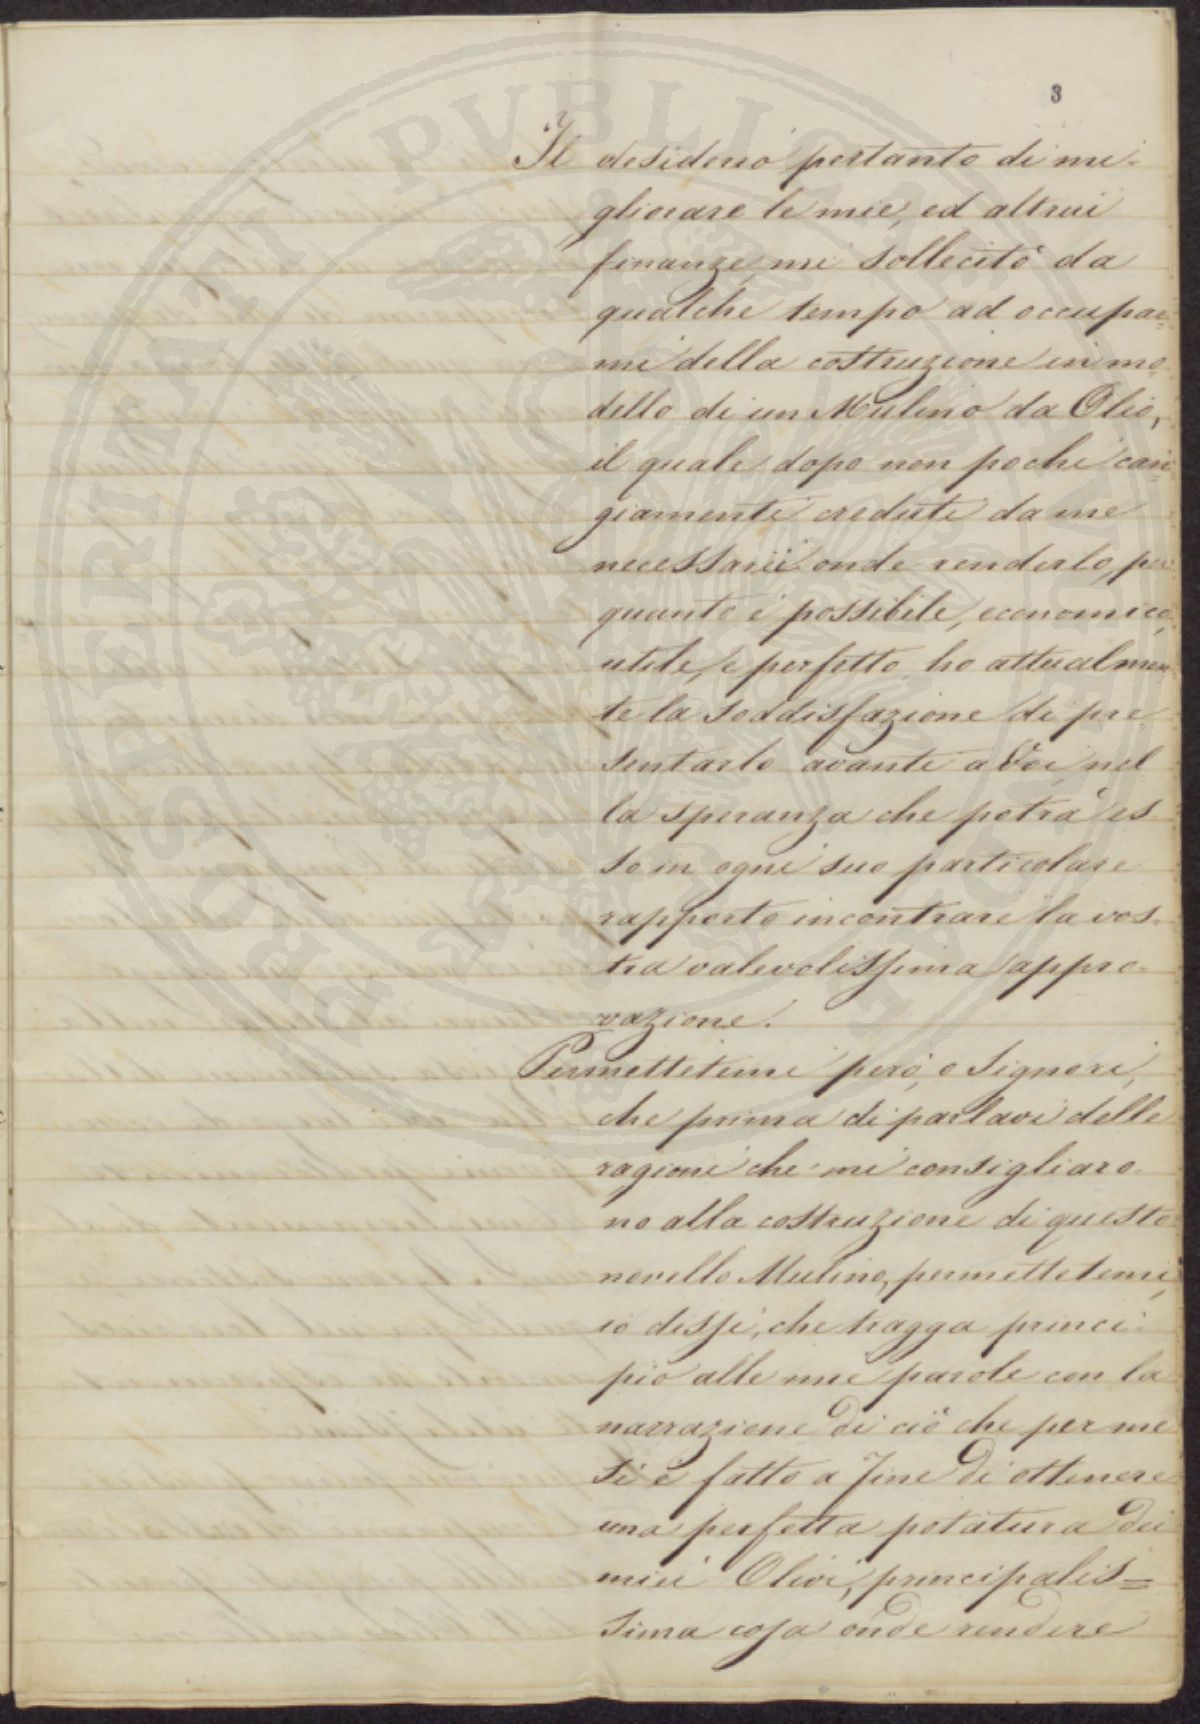 PROSPERITATI PUBLICAE AUGENDAE
3
Il desiderio pertanto di mi-
gliorare le mie, ed altrui
finanze, mi sollecitò da
qualche tempo ad occupar=
mi della costruzione in mo
dello di un Mulino da Olio,
il quale dopo non pochi can
giamenti creduti da me
necessarii onde renderlo, per
quanto è possibile, economico,
utile, e perfetto, ho attualmen
te la soddisfazione di pre
sentarlo avanti a Voi, nel
la speranza che potrà es
so in ogni suo particolare
rapporto incontrare la vos-
tra valevolissima appro-
vazione.
Permettetemi però, o Signori,
che prima di parlarvi delle
ragioni che mi consigliaro-
no alla costruzione di questo
novello Mulino, permettetemi,
io dissi, che tragga princi-
pio alle mie parole con la
narrazione di ciò che per me
si è fatto a fine di ottenere
una perfetta potatura dei
miei Olivi, principalis=
sima cosa onde rendere